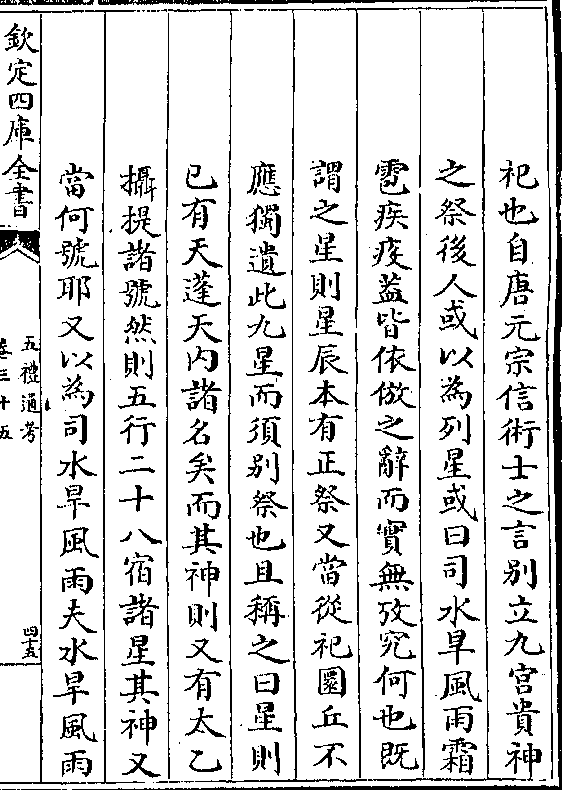 祀也自唐元宗信術士之言别立九宫貴神
之祭後人或以為列星或曰司水旱風雨霜
雹疾疫葢皆依倣之辭而實無攷究何也既
謂之星則星辰本有正祭又當從祀圜丘不
應獨遺此九星而須别祭也且稱之曰星則
已有天蓬天内諸名矣而其神則又有太乙
攝提諸號然則五行二十八宿諸星其神又
當何號耶又以為司水旱風雨夫水旱風雨
欽定四庫全書
五禮通考
卷三十五
四十五